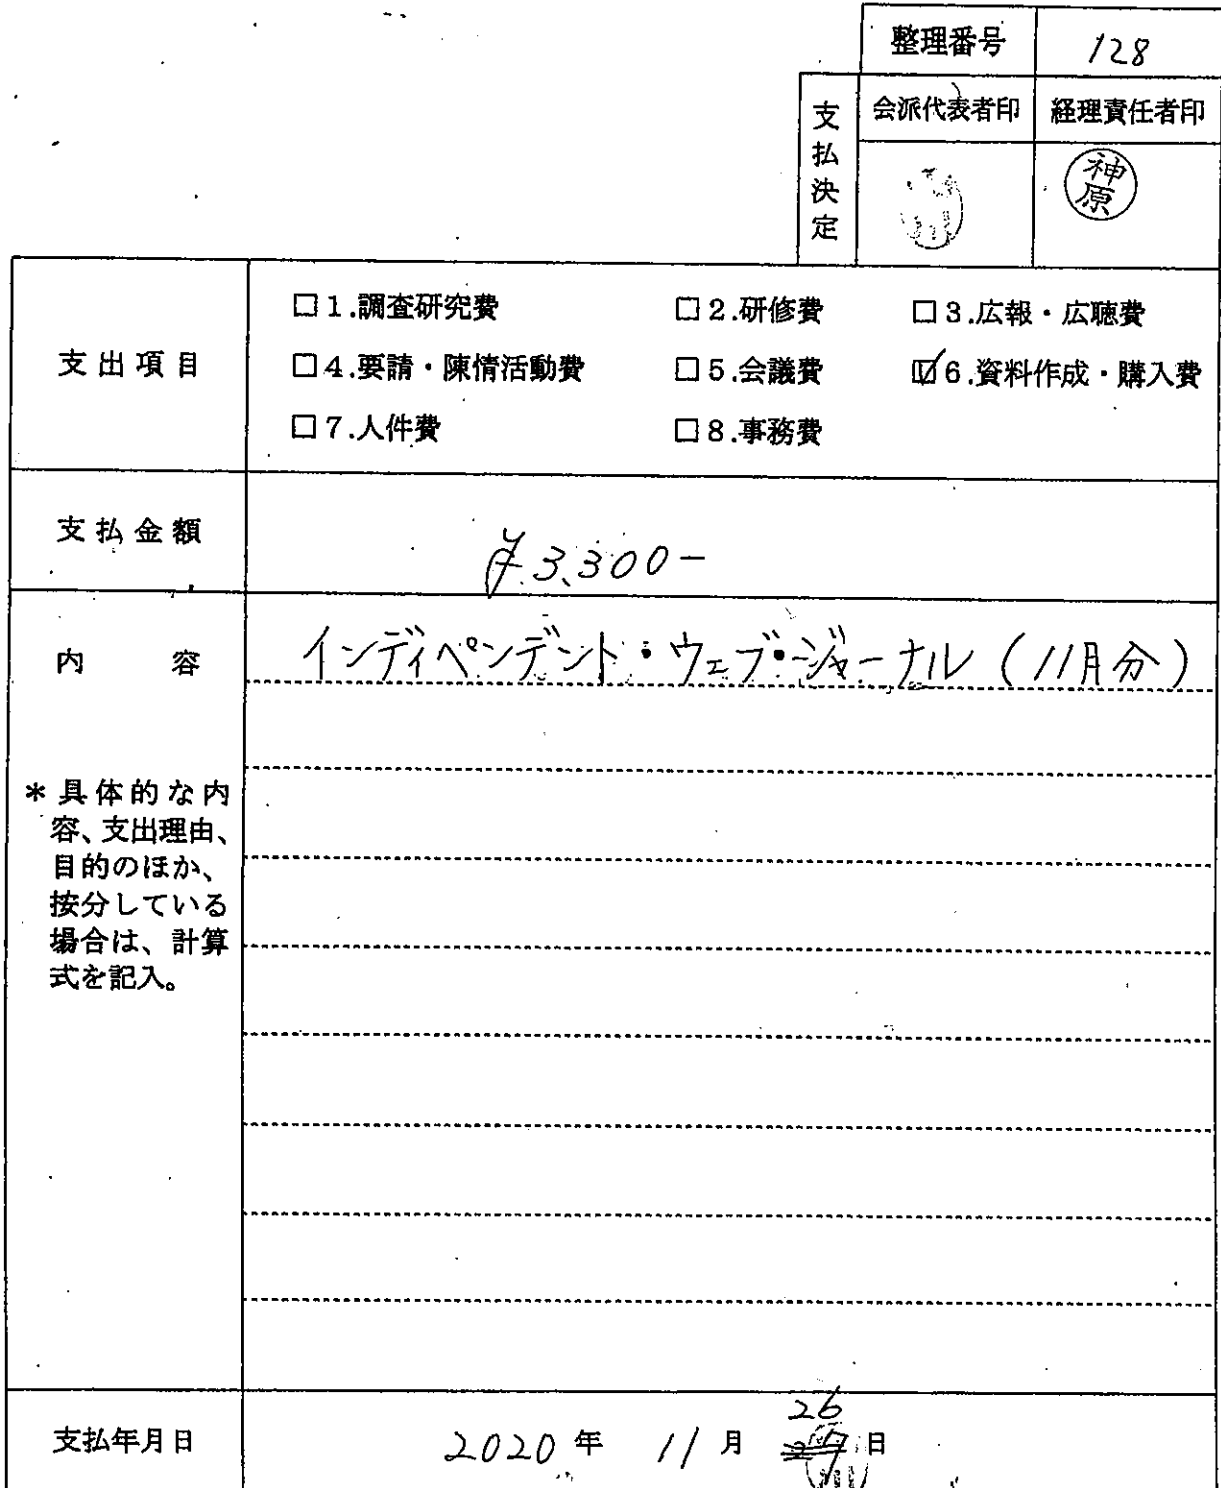 整理番号 128
支払決定
会派代表者印 経理責任者印
神原
支出項目
□1.調査研究費 □2.研修費 □3.広報・広聴費
□4.要請・陳情活動費 □5.会議費 ☑6.資料作成・購入費
□7.人件費 □8.事務費
支払金額
¥3,300-
内容 インディペンデント・ウェブ・ジャーナル(11月分)
*具体的な内
容、支出理由、
目的のほか、
按分している
場合は、計算
式を記入。
26
支払年月日 2020年 11月 27日